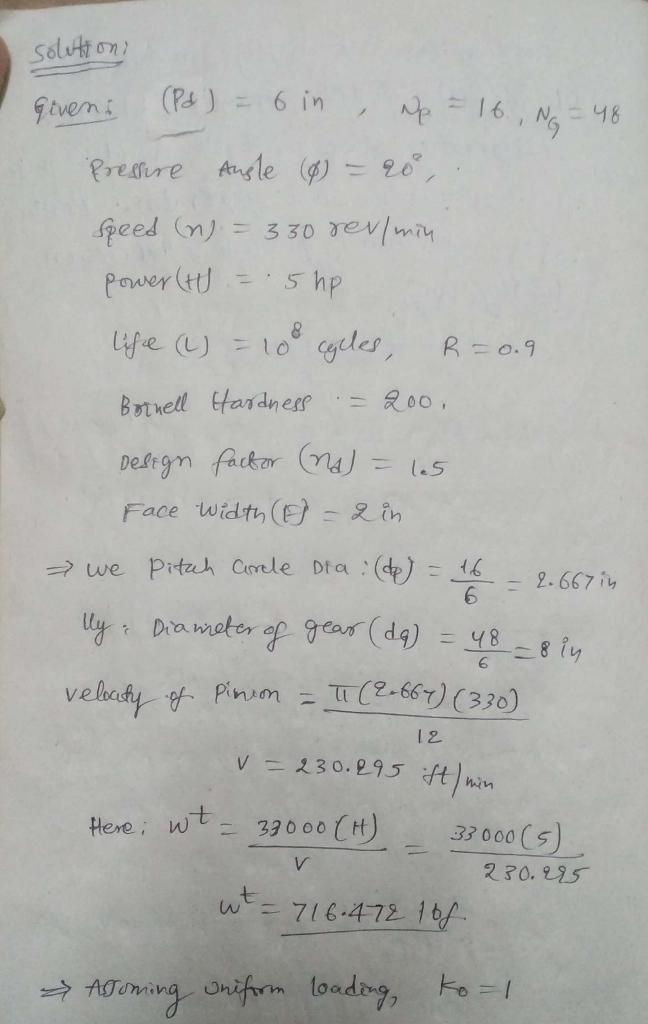 Solution:
Given: (Pd) = 6 in , Np = 16, NG = 48
Pressure Angle (ϕ) = 20°,
Speed (n) = 330 rev/min
Power (H) = 5 hp
Life (L) = 10⁸ cycles, R = 0.9
Brinell Hardness = 200.
Design factor (nd) = 1.5
Face Width (F) = 2 in
⇒ We Pitch Circle Dia : (dp) = 16/6 = 2.667 in
lly : Diameter of gear (dG) = 48/6 = 8 in
velocity of Pinion = π(2.667)(330)/12
V = 230.295 ft/min
Here; Wᵗ = 33000(H)/V = 33000(5)/230.295
Wᵗ = 716.472 lbf
⇒ Assuming uniform loading, Ko = 1